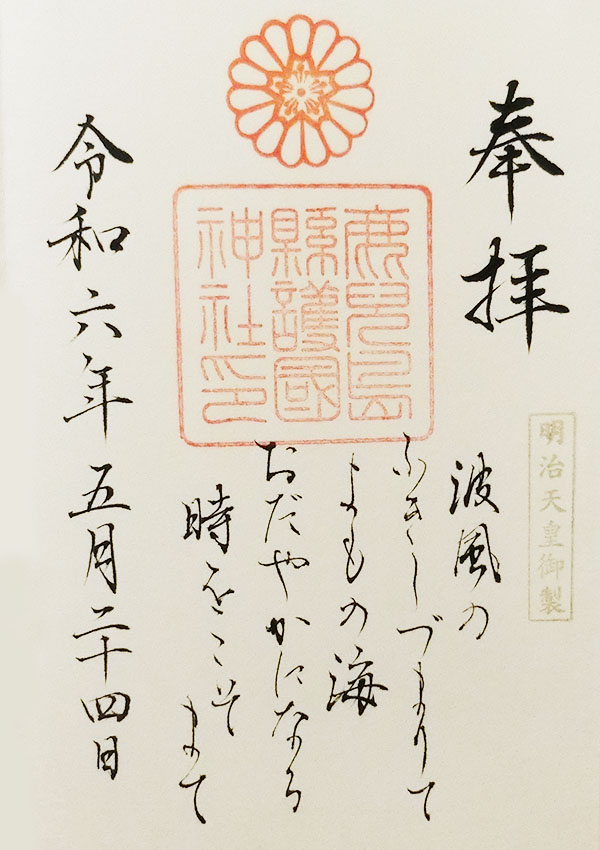 奉拝
明治天皇御製
波風の
ふきしづまりて
よもの海
おだやかになる
時をこそまて
鹿兒島
縣護國
神社印
令和六年五月二十四日